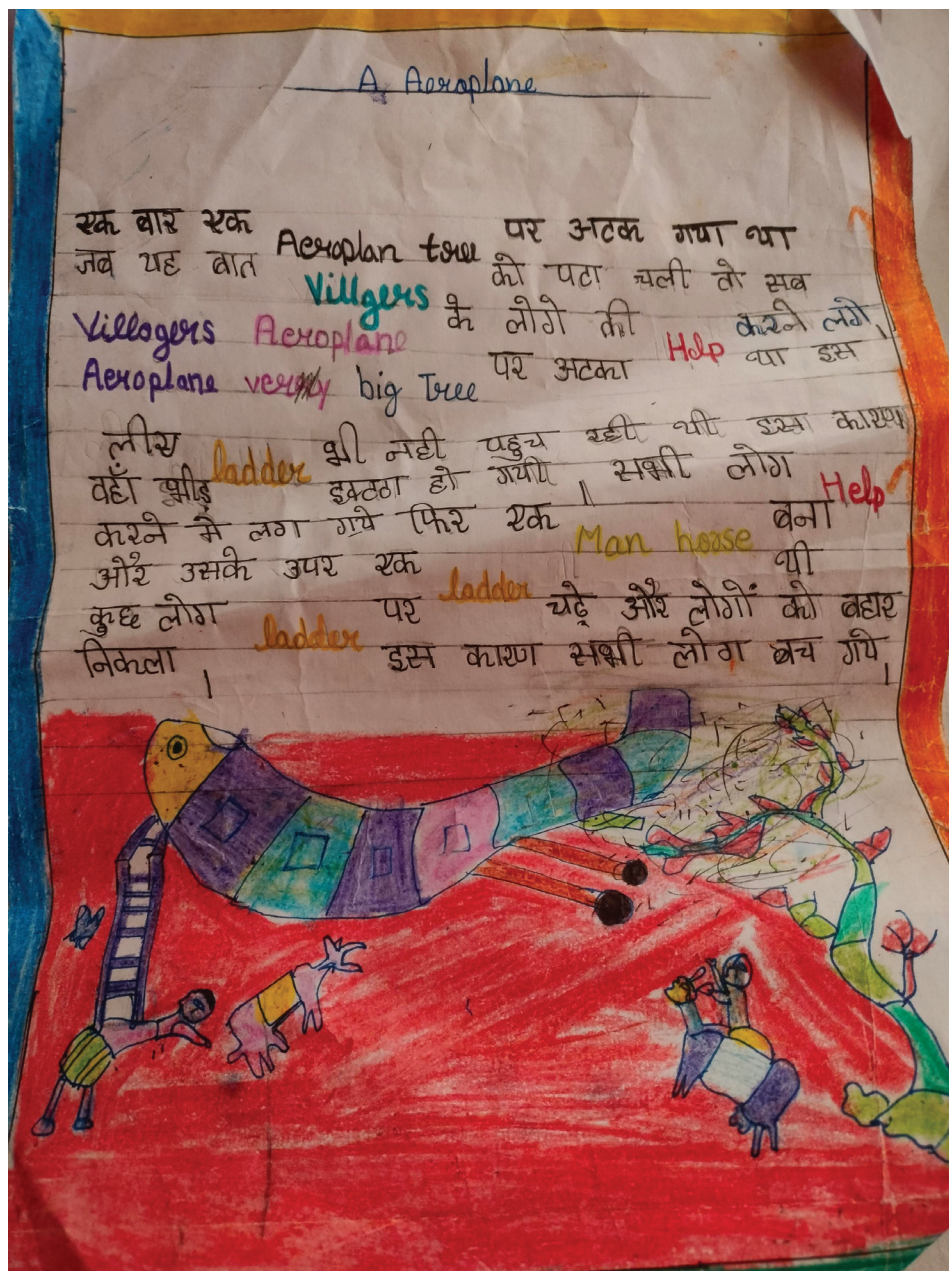 A Aeroplane
एक बार एक Aeroplan tree पर अटक गया था
जब यह बात Villgers को पता चली तो सब
Villogers Aeroplane के लोगे की Help करने लगे।
Aeroplane very big Tree पर अटका था इस
लीए ladder भी नही पहुच रही थी इसा कारण
वहाँ भीड़ इक्टठा हो गयीथे। सभी लोग Help
करने मे लग गये फिर एक Man horse बना
और उसके उपर एक ladder थी
कुछ लोग ladder पर चढ़े और लोगों को बहार
निकला। इस कारण सभी लोग बच गये।